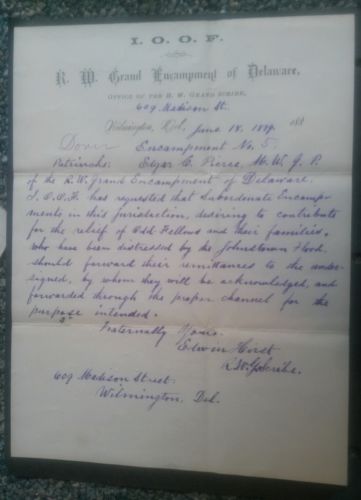 I. O. O. F.
R. W. Grand Encampment of Delaware,
OFFICE OF THE R. W. GRAND SCRIBE,
609 Madison St.
Wilmington, Del., June 18, 1889. 188
Dover Encampment No. 5.
Patriarchs: Edgar C. Pierce, M. W. G. P.
of the R. W. Grand Encampment of Delaware.
I. O. O. F. has requested that Subordinate Encamp-
ments in this jurisdiction, desiring to contribute
for the relief of Odd Fellows and their families,
who have been distressed by the Johnstown flood,
should forward their remittances to the under-
signed, by whom they will be acknowledged, and
forwarded through the proper channel for the
purpose intended.
Fraternally Yours.
Edwin Hirst
R. W. G. Scribe.
609 Madison Street.
Wilmington, Del.